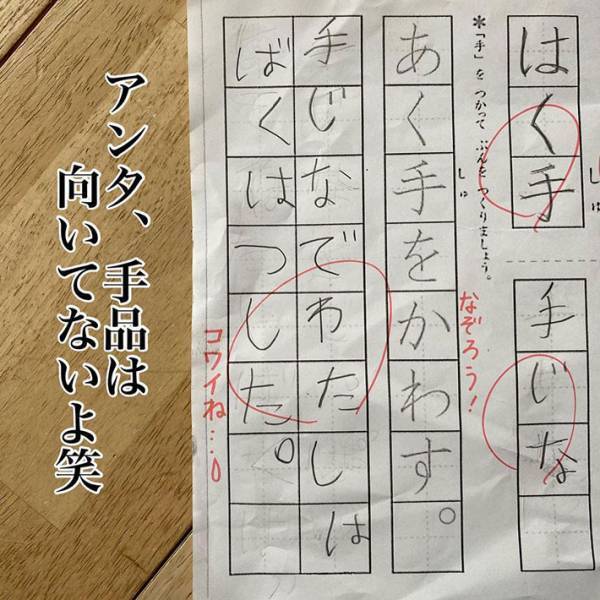 はく手
しゅ
手じな
*「手」を つかって ぶんを つくりましょう。
あく手をかわす。
しゅ
なぞろう!
手じなでわたしは
ばくはつした。
コワイね…
アンタ、手品は
向いてないよ笑